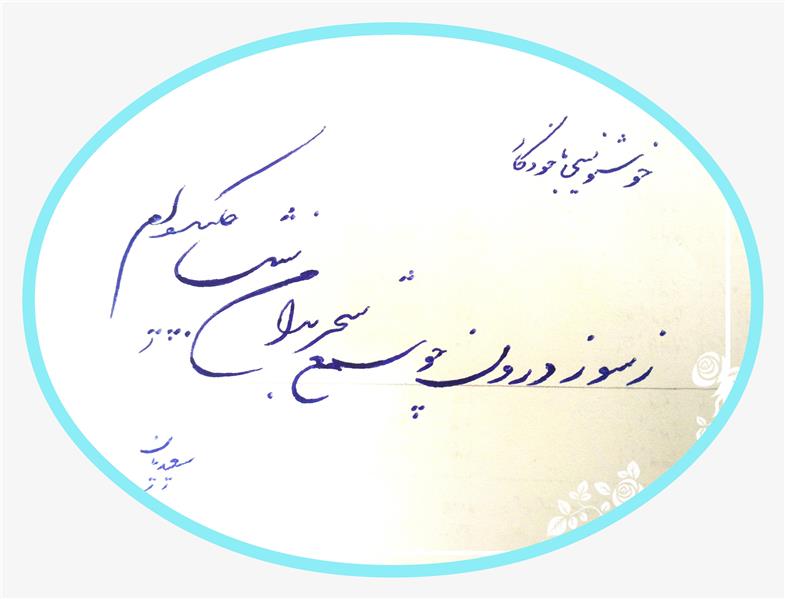 خوشنویسی با خودکار
ز سوز درون چو شمع سحر بدامن شب چکیده ام
سعیدیان